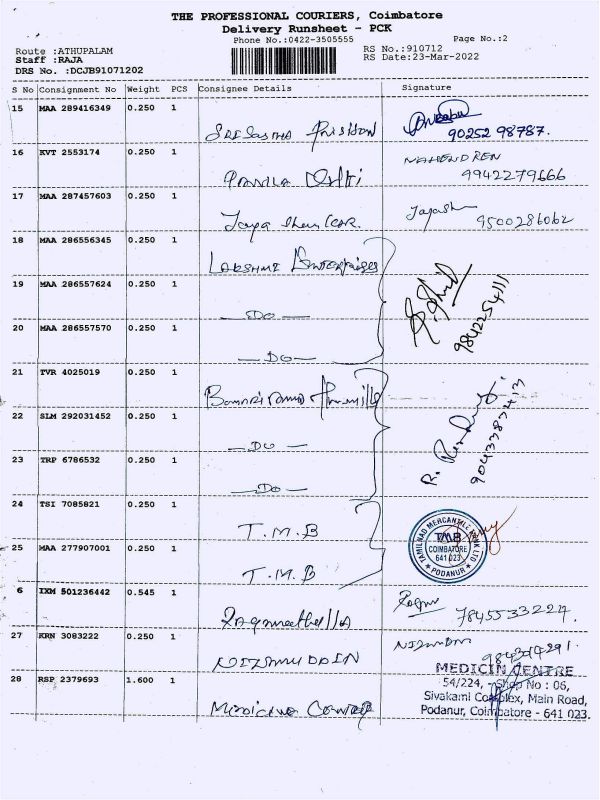 THE PROFESSIONAL COURIERS, Coimbatore
Delivery Runsheet - PCK
Phone No.:0422-3505555 Page No.:2
Route :ATHUPALAM RS No.:910712
Staff :RAJA RS Date:23-Mar-2022
DRS No. :DCJB91071202
S No Consignment No Weight PCS Consignee Details Signature
15 MAA 289416349 0.250 1
90252 98787.
16 KVT 2553174 0.250 1 NAHENDREN
9942279666
17 MAA 287457603 0.250 1 Jayash 9500286062
Jaya
18 MAA 286556345 0.250 1
LAKSHMI Enterprises
19 MAA 286557624 0.250 1
— DO —
9842254111
20 MAA 286557570 0.250 1
— DO —
21 TVR 4025019 0.250 1
22 SLM 292031452 0.250 1
— DO —
23 TRP 6786532 0.250 1
— DO —
24 TSI 7085821 0.250 1
T.M.B
TAMILNAD MERCANTILE BANK LTD
TMB
COIMBATORE
641 023
PODANUR
25 MAA 277907001 0.250 1
T.M.B
6 IXM 501236442 0.545 1
7845533227.
27 KRN 3083222 0.250 1
NIZAMUDDIN
28 RSP 2379693 1.600 1
Medicine Centre
MEDICIN CENTRE
54/224, Shop No : 06,
Sivakami Complex, Main Road,
Podanur, Coimbatore - 641 023.